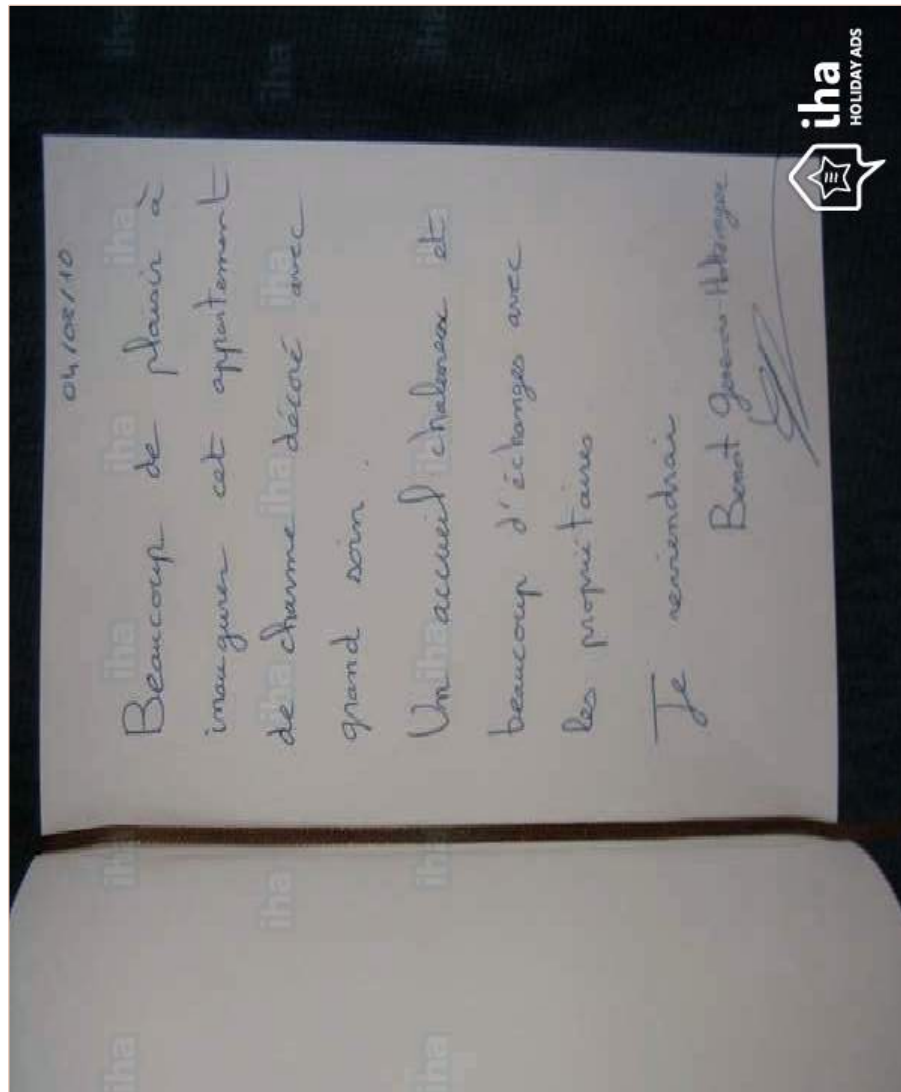 04/08/10
Beaucoup de plaisir à
inaugurer cet appartement
de charme décoré avec
grand soin.
Un accueil chaleureux et
beaucoup d'échanges avec
les propriétaires
Je reviendrai
Benoit
iha
HOLIDAY ADS